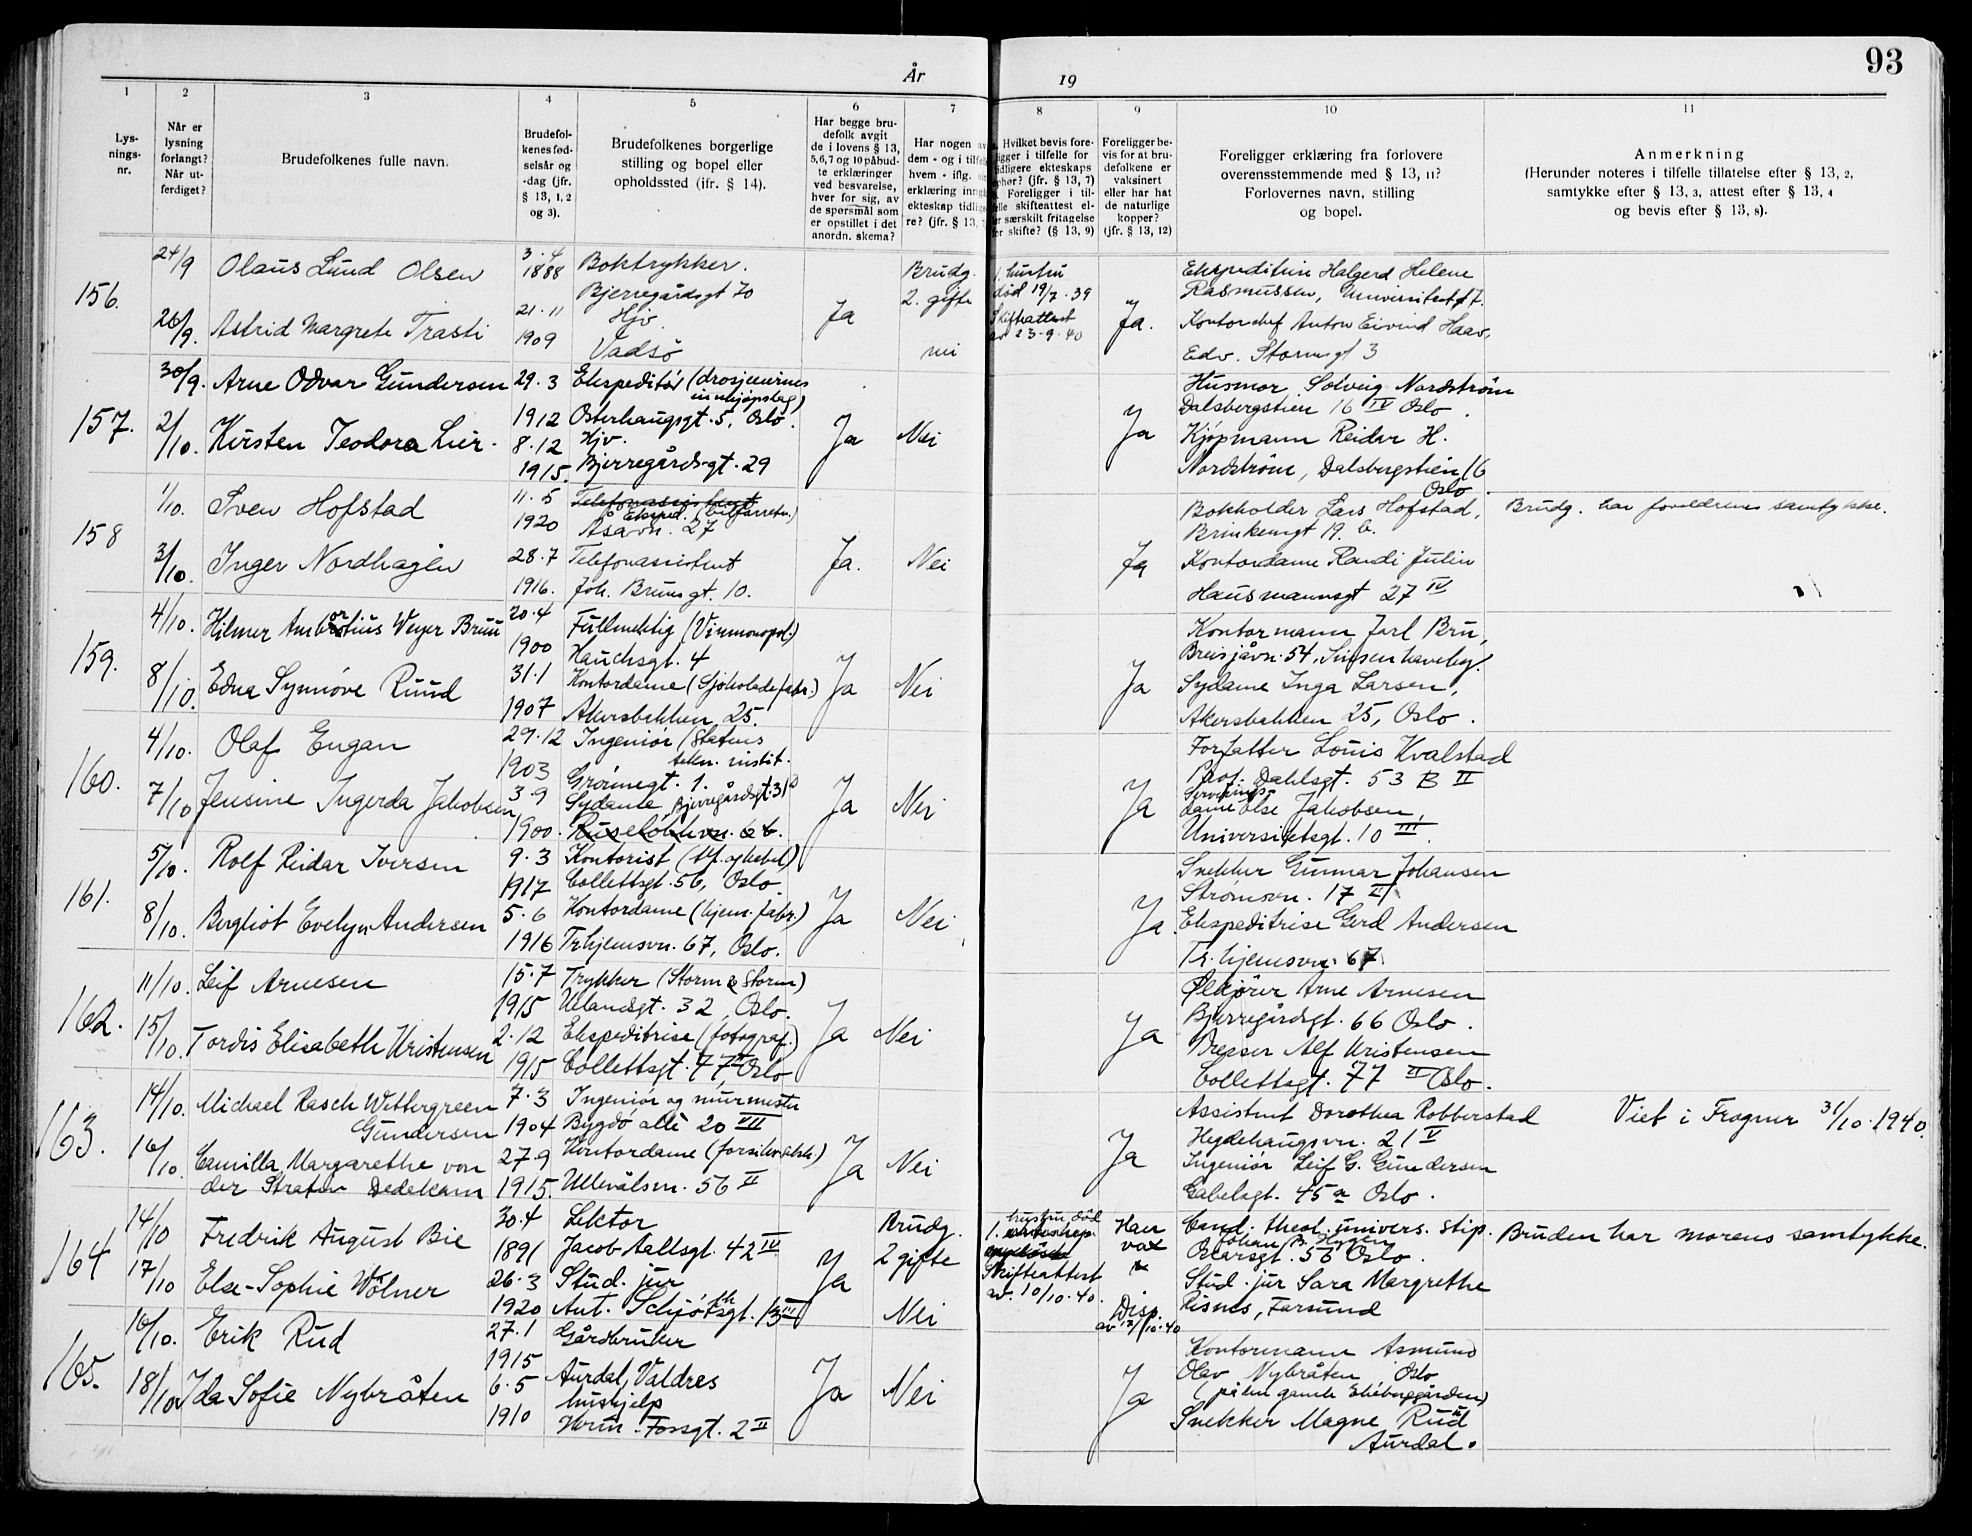 93
År 19
1 2 3 4 5 6 7 8 9 10 11
Lys-
nings-
nr.
Når er
lysning
forlangt?
Når ut-
ferdiget?
Brudefolkenes fulle navn.
Brudefol-
kenes fød-
selsår og
-dag (jfr.
§ 13, 1, 2
og 3).
Brudefolkenes borgerlige
stilling og bopel eller
opholdssted (ifr. § 14).
Har begge bru-
defolk avgit
de i lovens § 13,
5, 6, 7 og 10 påbud-
te erklæringer
ved besvarelse,
hver for sig, av
de spørsmål som
er opstillet i det
anordn. skema?
Har nogen
dem - og i
hvem - iflg.
erklæring
ekteskap
re? (jfr. § 13,
Hvilket bevis fore-
ligger i tilfelle for
tidligere ekteskaps
ophør? (jfr. § 13, 7)
Foreligger i til-
felle skifteattest el-
ler særskilt fritagelse
for skifte? (§ 13, 9)
Foreligger be-
vis for at bru-
defolkene er
vaksinert
eller har hat
de naturlige
kopper?
(jfr. § 13, 12)
Foreligger erklæring fra forlovere
overensstemmende med § 13, 11?
Forlovernes navn, stilling
og bopel.
Anmerkning
(Herunder noteres i tilfelle tillatelse efter § 13, 2,
samtykke efter § 13, 3, attest efter § 13, 4
og bevis efter § 13, 8).
156.
24/9 Olaus Lund Olsen
3.4
1888
Boktrykker.
Bjerregårdsgt 70
26/9. Astrid Margrete Trasti
21.11
1909
Hjv.
Vadsö
Ja
Brudg.
2. gifte
nei
1. hustru
död 19/7.39
Skifteattest
av 23-9-40
Ja.
Ekspeditrise Halgerd Helene
Rasmussen, Universitetsgt 7.
Kontorchef Anton Eivind Haav,
Edv. Stormsgt 3
157.
30/9. Arne Odvar Gundersen
29.3
1912
Ekspeditör (drosjeeiernes
innkjøpslag)
Osterhausgt. 5, Oslo.
2/10. Kirsten Teodora Lier.
8.12
1915.
Hjv.
Bjerregårdsgt. 29
Ja
Nei
Ja
Husmor Solveig Nordström
Dalsbergstien 16 IV Oslo.
Kjøpmann Reidar H.
Nordström, Dalsbergstien 16
Oslo.
158
1/10. Sven Hofstad
11.5
1920
Telefonassistent
Eksped. (bilforretn.)
Åsavn. 27
3/10. Inger Nordhagen
28.7
1916.
Telefonassistent
Joh. Brunsgt. 10.
Ja.
Nei
Ja
Bokholder Lars Hofstad,
Brinkensgt 19. b.
Kontordame Randi Julin
Hausmannsgt 27 IV
Brudg. har foreldrenes samtykke.
159.
4/10. Hilmer Ambrotius Weyer Bruu
or
20.4
1900
Fullmektig (Vinmonopol.)
Hauchsgt. 4
8/10. Edna Synnöve Ruud
31.1
1907
Kontordame (Sjokoladefabr.)
Akersbakken 25.
Ja
Nei
Ja
Kontormann Jarl Bru,
Breisjåvn. 54, Sinsen haveby.
Sydame Inga Larsen,
Akersbakken 25, Oslo.
160.
4/10. Olaf Engan
29.12
1903
Ingeniör (Statens
tekn. instit.
Grönnegt. 1.
7/10 Jensine Ingerda Jakobsen
3.9
1900.
Sydame, Bjerregårdsgt. 31
Ruselökkvn. 6 b.
Ja
Nei
Ja
Forfatter Louis Kvalstad
Prof. Dahlsgt. 53 B II
Serverings-
dame Else Jakobsen,
Universitetsgt. 10 III.
161.
5/10. Rolf Reidar Iversen
9.3
1917
Kontorist (tlf. og kabel)
Collettsgt. 56, Oslo.
8/10. Bergliot Evelyn Andersen
5.6
1916
Kontordame (kjem. fabr.)
Tr.hjemsvn. 67, Oslo.
Ja
Nei
Ja.
Snekker Gunnar Johansen
Strömsvn. 17 II
Ekspeditrise Gerd Andersen
Tr. hjemsvn. 67
162.
11/10. Leif Arnesen
15.7
1915
Trykker (Storm & Storm)
Uelandsgt. 32, Oslo.
15/10. Tordis Elisabeth Kristensen
2.12
1915
Ekspeditrise (fotograf.)
Collettsgt. 77 II, Oslo
Ja
Nei
Ja
Ølkjörer Arne Arnesen
Bjerregårdsgt. 66 Oslo.
Dreier Alf Kristensen
Collettsgt. 77 II Oslo.
163.
14/10. Michael Rasch Wettergreen
Gundersen
7.3
1904
Ingeniör og murmester
Bygdö allé 20 VII
16/10. Camilla Margarethe von
der Straten Dedekam
27.9
1915.
Kontordame (forsikr.selsk.)
Ullevålsvn. 56 II
Ja
Nei
Ja
Assistent Dorothea Robberstad
Hegdehaugsvn. 21 V
Ingeniör Leif G. Gundersen
Gabelsgt. 45 a Oslo.
Viet i Frogner 31/10.1940.
164
14/10 Fredrik August Bie
30.4
1891
Lektor
Jacob Aallsgt. 42 IV
17/10 Else-Sophie Wölner
26.3
1920
Stud. jur
Ant. Schjöthsgt. 13 III
Ja
Brudg.
2 gifte
Nei
hustru död
1. ekteskap
opplöst
Skifteattest
av. 10/10.40.
Han
vax
Disp.
av 12/10.40
Cand. theol. univers. stip.
Johan B. Hygen
Oscarsgt. 53 Oslo.
Stud. jur Sara Margrethe
Risnes, Farsund
Bruden har morens samtykke.
165.
16/10. Erik Rud
27.1
1915
Gårdbruker
Aurdal, Valdres
18/10 Ida Sofie Nybråten
6.5
1910
hushjelp
Herm. Fossgt. 2 II
Ja
Nei
Ja
Kontormann Asmund
Olav Nybråten Oslo
(på den gamle Ekeberggården)
Snekker Magne Rud
Aurdal.